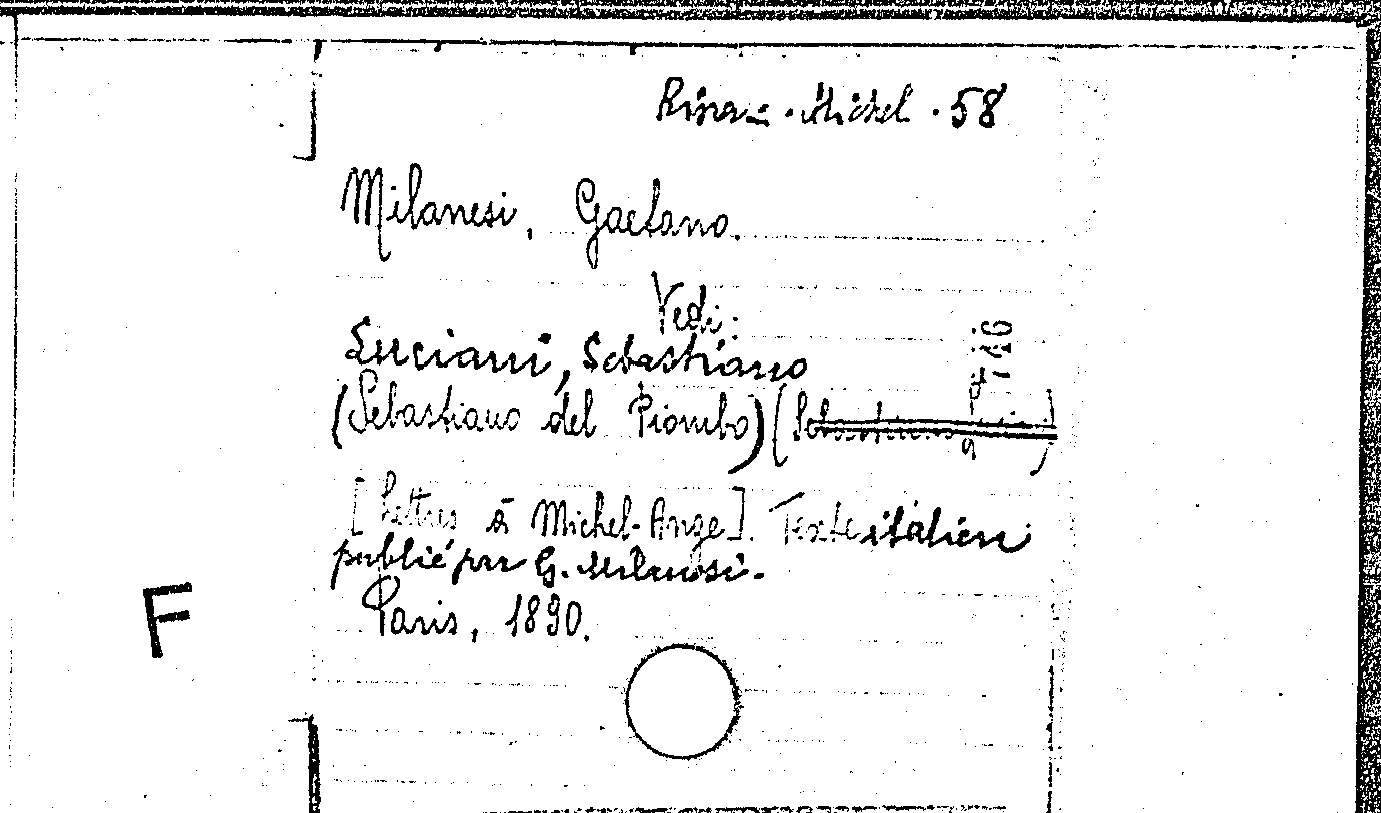 Michel . 58
Milanesi, Gaetano.
Vedi:
Luciani, Sebastiano
(Sebastiano del Piombo) (Sebastiano
746
[Lettres à Michel-Ange]. Texte italien
publié par G. Milanesi.
Paris, 1890.
F